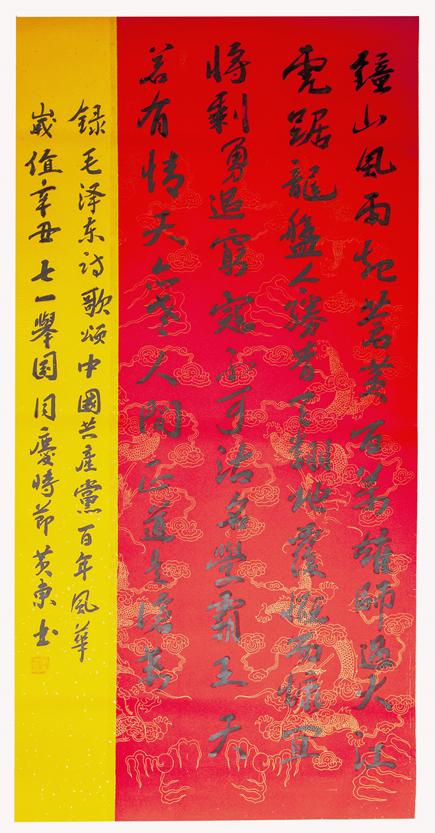 鐘山风雨起蒼黄百萬雄師過大江
虎踞龍盤今勝昔天翻地覆慨而慷宜
将剩勇追窮寇不可沽名學霸王天
若有情天亦老人間正道是滄桑
録毛泽东诗歌颂中國共產黨百年风華
歲值辛丑七一舉国同慶時節黄東书